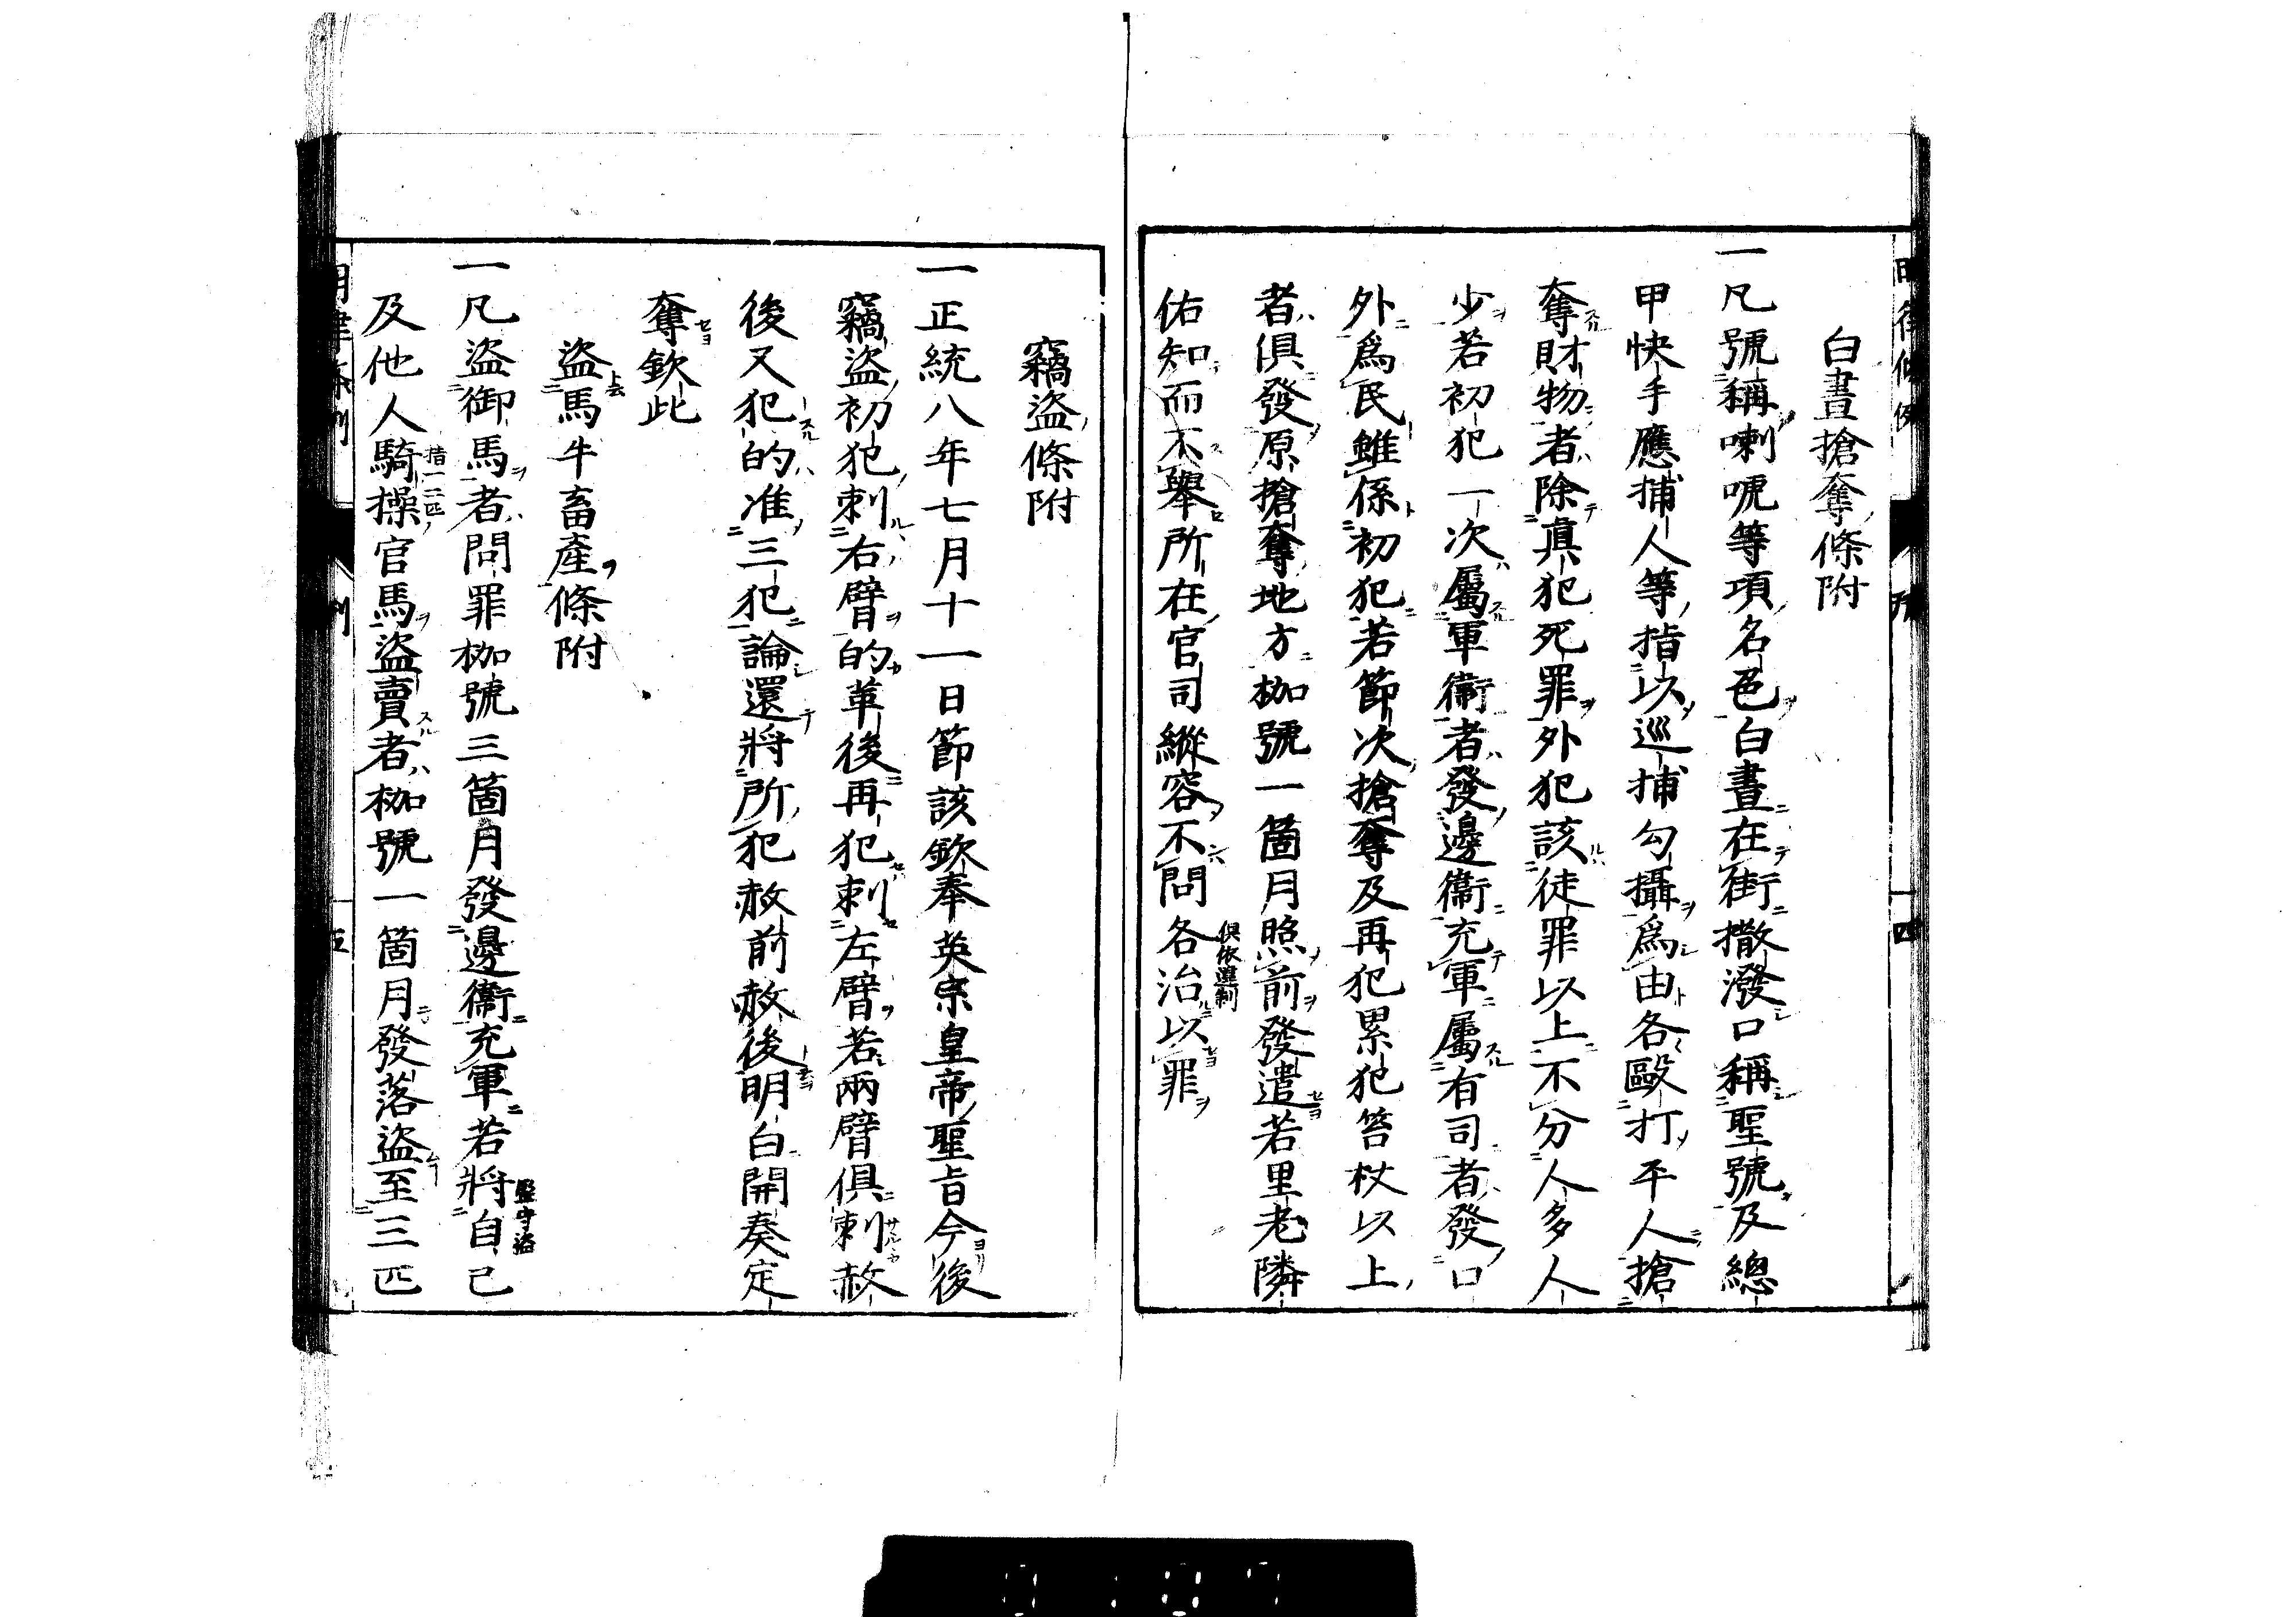 白晝搶奪條附
一凡號稱喇唬等項名色白晝在街撒潑口稱聖號及總
甲快手應捕人等指以巡捕勾攝爲由各毆打平人搶
奪財物者除眞犯死罪外犯該徒罪以上不分人多人
少若初犯一次屬軍衞者發邊衞充軍屬有司者發口
外爲民雖係初犯若節次搶奪及再犯累犯笞杖以上
者俱發原搶奪地方枷號一箇月照前發遣若里老隣
佑知而不舉所在官司縱容不問各治以罪
竊盜條附
一正統八年七月十一日節該欽奉英宗皇帝聖旨今後
竊盜初犯刺右臂的革後再犯刺左臂若兩臂俱刺赦
後又犯的准三犯論還將所犯赦前赦後明白開奏定
奪欽此
盜馬牛畜產條附
一凡盜御馬者問罪枷號三箇月發邊衞充軍若將自己
及他人騎操官馬盜賣者枷號一箇月發落盜至三匹